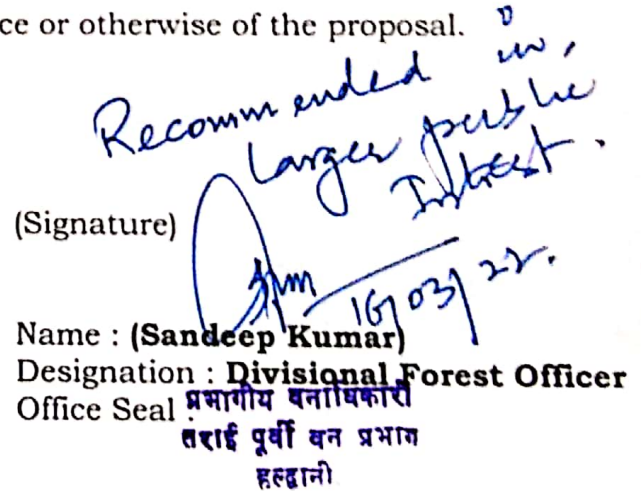 ce or otherwise of the proposal.
Recommended in
larger public
Interest.
(Signature)
16/03/22.
Name : (Sandeep Kumar)
Designation : Divisional Forest Officer
Office Seal :
प्रभागीय वनाधिकारी
तराई पूर्वी वन प्रभाग
हल्द्वानी